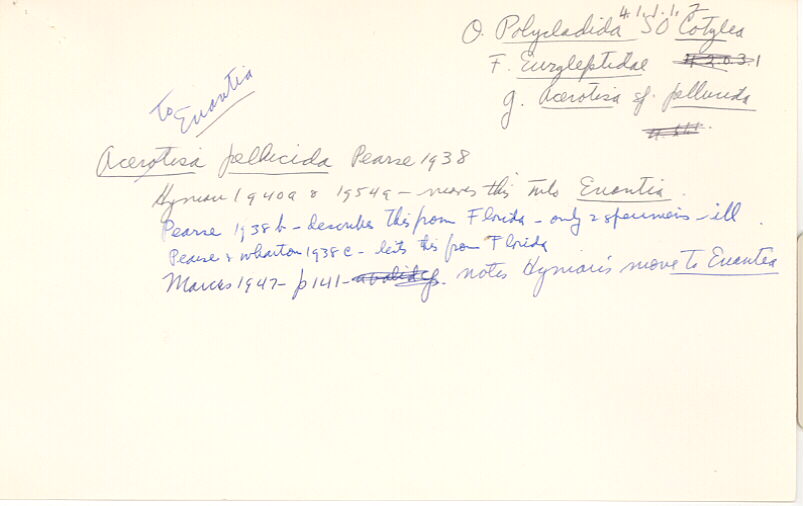 4.1.1.1.7
O. Polycladida SO Cotylea
F. Euryleptidae 4.2.0.3.1
g. Acerotisa sp. pellucida
To Enantia
Acerotisa pellucida Pearse 1938
Hyman 1940a & 1954a – moves this into Enantia.
Pearse 1938b – describes this from Florida – only 2 specimens – ill.
Pearse & Wharton 1938c – lists this from Florida
Marcus 1947 – p141 – notes Hyman's move to Enantia